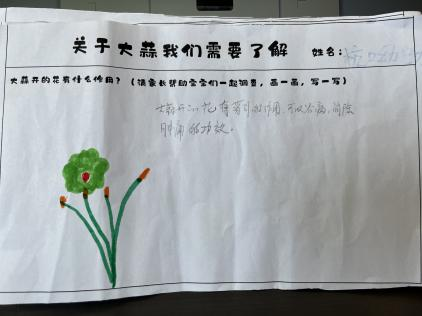 关于大蒜我们需要了解 姓名:
大蒜开的花有什么作用?(请家长帮助宝宝们一起调查,画一画,写一写)
大蒜开的花有药引的作用,可以治病,消除
肿痛的功效。